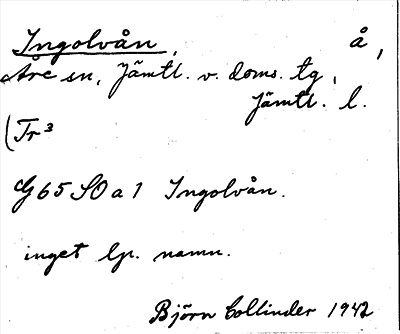 Ingolvån, å,
Åre sn, Jämtl. v. doms. tg,
Jämtl. l.
(Tr³
G65 SO a 1 Ingolvån.
inget lp. namn.
Björn Collinder 1942